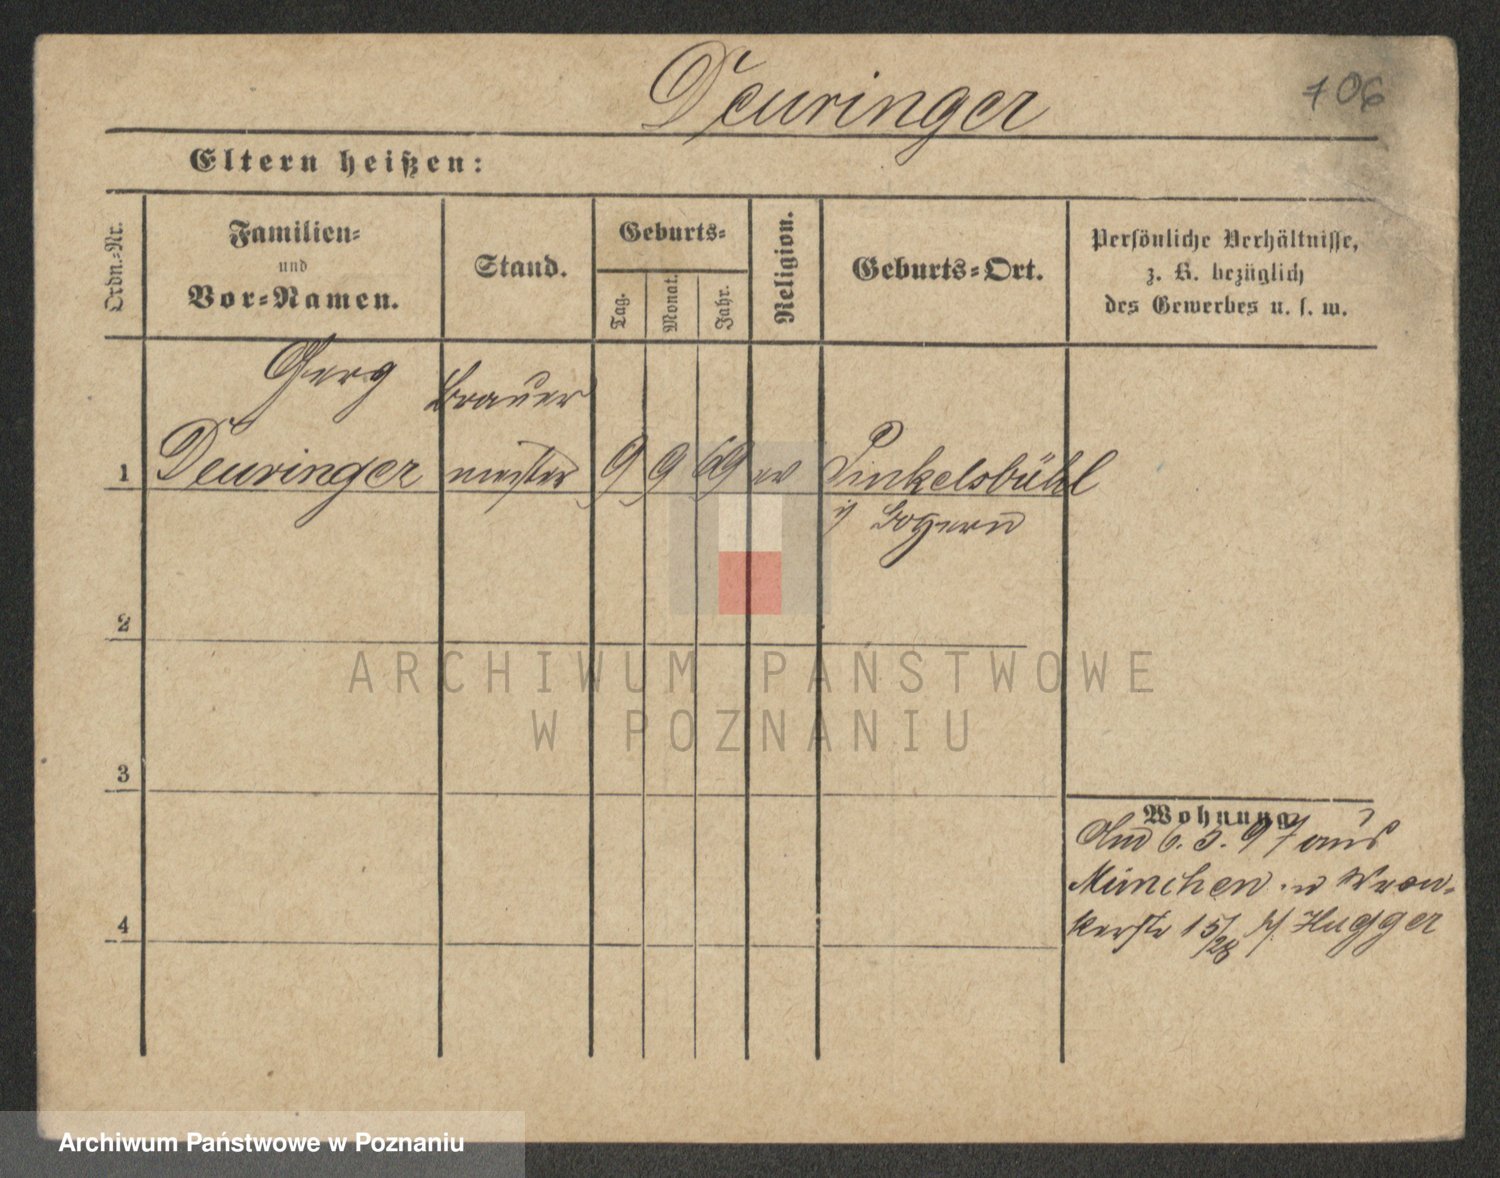 Deuringer
106
Eltern heißen:
Ordn.-Nr.
Familien-
und
Vor-Namen.
Stand.
Geburts-
Tag.
Monat.
Jahr.
Religion.
Geburts-Ort.
Persönliche Verhältnisse,
z. B. bezüglich
des Gewerbes u. s. w.
Gerg
Brauer
1
Deuringer
meister
9
9
69
ev
Dinkelsbühl
Bayern
2
3
4
Wohnung
6. 5. 97 aus
München Wron-
kerstr 15/28 Hugger
ARCHIWUM PAŃSTWOWE
W POZNANIU
Archiwum Państwowe w Poznaniu